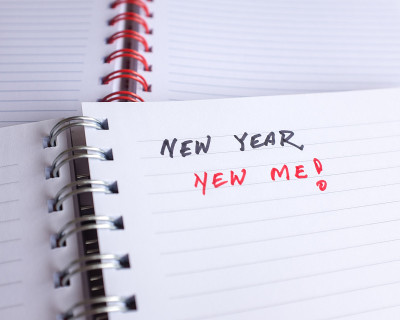 NEW YEAR
NEW ME!